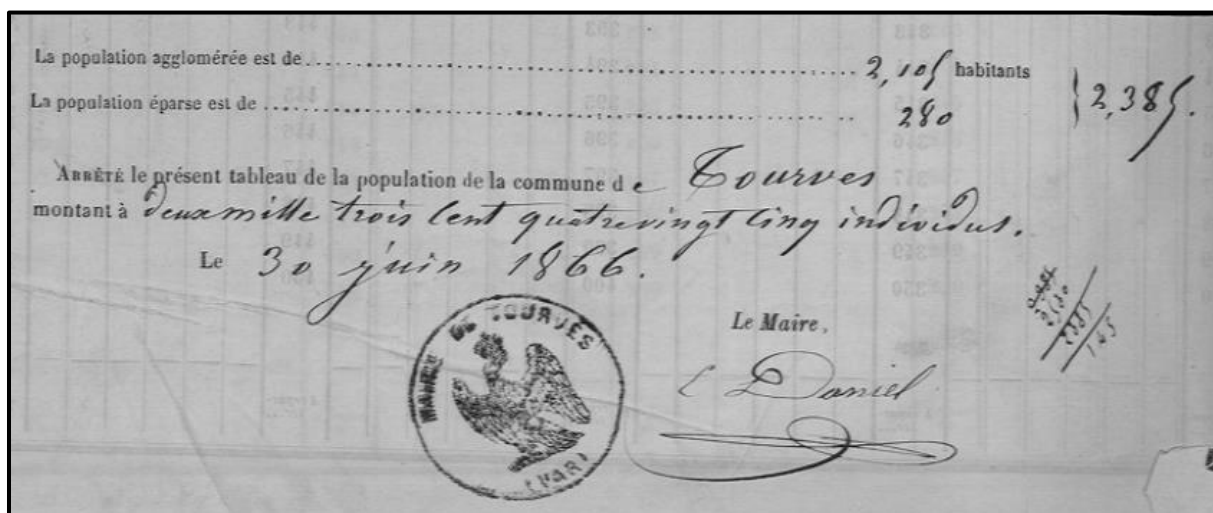 La population agglomérée est de 2,105 habitants
La population éparse est de 280
} 2,385.
ARRÊTÉ le présent tableau de la population de la commune de Tourves
montant à deux mille trois cent quatre vingt cinq individus.
Le 30 juin 1866.
Le Maire,
Daniel
MAIRIE DE TOURVES
(VAR)
2385
145